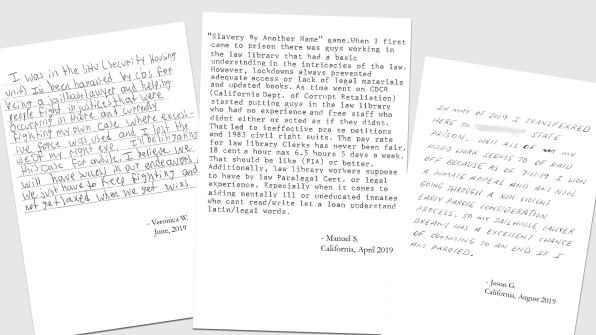 I was in the SHU (Security Housing
unit). I'm been harassed by COs for
being a jailhouse lawyer and helping
people fight injustices that were
occurring in there and currently
fighting my own case where excessi-
ive force was used and I lost the
use of my right eye. I'll be litigating
this case for awhile. I believe we
will have success in our endeavors
we just have to keep fighting and
not get laxed when we get wins.
- Veronica W.
June, 2019
"Slavery By Another Name" game.When I first
came to prison there was guys working in
the law library that had a basic
understnding in the intricacies of the law.
However, lockdowns always prevented
adequate access or lack of legal materials
and updated books. As time went on CDCR
(California Dept. of Corrupt Retaliation)
started putting guys in the law library
who had no experience and free staff who
didnt either or acted as if they didnt.
That led to ineffective pro se petitions
and 1983 civil right suits. The pay rate
for law library Clerks has never been fair.
18 cent a hour max 6.5 hours 5 days a week.
That should be like (PIA) or better.
Additionally, law library workers suppose
to have by law Paralegal Cert. or legal
experience. Especially when it comes to
aiding mentally ill or uneducated inmates
who cant read/write let a loan understand
latin/legal words.
- Manuel S.
California, April 2019
IN MAY OF 2019 I TRANSFERRED
HERE TO STATE
PRISON. WELL ALL OF MY
HARD WORK SEEMS TO OF PAID
OFF BECAUSE AS OF 7-11-19 I WON
A INMATE APPEAL AND AM NOW
GOING THROUGH A NON-VIOLENT
EARLY PAROLE CONSIDERATION
PROCESS. SO MY JAILHOUSE LAWYER
DREAM HAS A EXCELLENT CHANCE
OF COMMING TO AN END IF I
AM PAROLED.
- Jason G.
California, August 2019